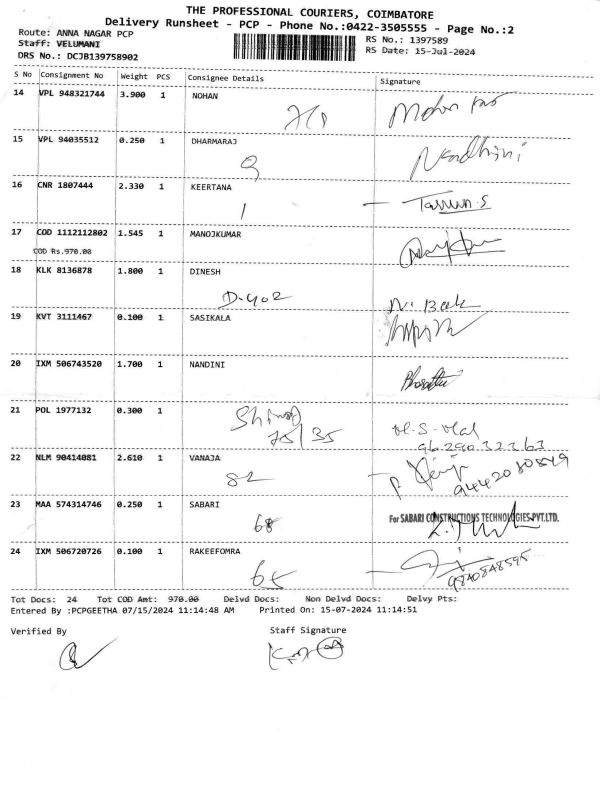 THE PROFESSIONAL COURIERS, COIMBATORE
Delivery Runsheet - PCP - Phone No.:0422-3505555 - Page No.:2
Route: ANNA NAGAR PCP
RS No.: 1397589
Staff: VELUMANI
RS Date: 15-Jul-2024
DRS No.: DCJB139758902
S No Consignment No Weight PCS Consignee Details Signature
14 VPL 948321744 3.900 1 NOHAN
15 VPL 94035512 0.250 1 DHARMARAJ
Nandhini
16 CNR 1807444 2.330 1 KEERTANA
1 Tarun.S
17 COD 1112112802 1.545 1 MANOJKUMAR
COD Rs.970.00
18 KLK 8136878 1.800 1 DINESH
D-402
19 KVT 3111467 0.100 1 SASIKALA
20 IXM 506743520 1.700 1 NANDINI
21 POL 1977132 0.300 1
75/35
22 NLM 90414081 2.610 1 VANAJA
82 9442080849
23 MAA 574314746 0.250 1 SABARI
For SABARI CONSTRUCTIONS TECHNOLOGIES PVT.LTD.
68
24 IXM 506720726 0.100 1 RAKEEFOMRA
65 9840848595
Tot Docs: 24 Tot COD Amt: 970.00 Delvd Docs: Non Delvd Docs: Delvy Pts:
Entered By :PCPGEETHA 07/15/2024 11:14:48 AM Printed On: 15-07-2024 11:14:51
Verified By Staff Signature